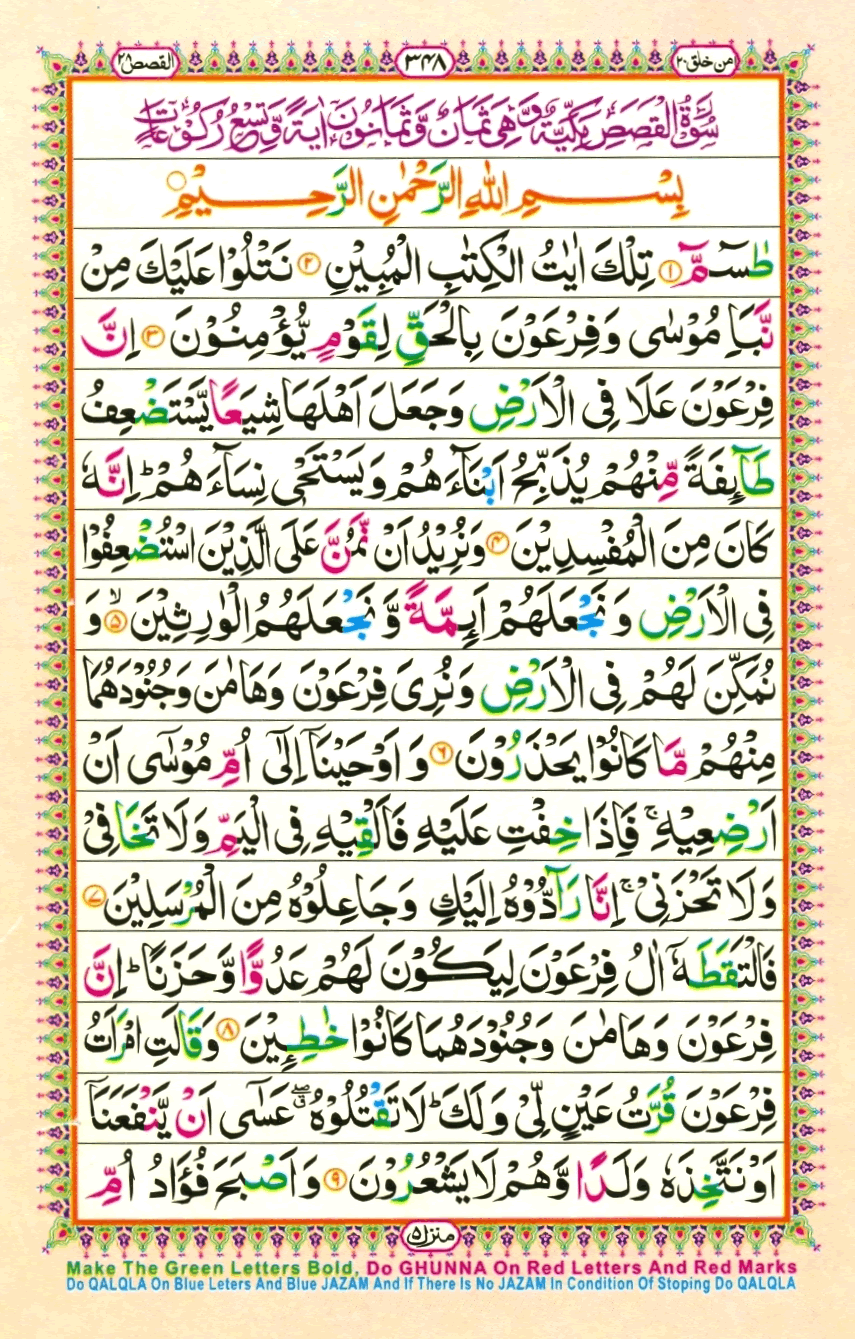 القصص ٢٨
٣٤٨
من خلق ٢٠
سُوْرَةُ الْقَصَصِ مَكِّيَّةٌ وَّهِيَ ثَمَانٌ وَّثَمَانُوْنَ اٰيَةً وَّتِسْعُ رُكُوْعَاتٍ
بِسْمِ اللّٰهِ الرَّحْمٰنِ الرَّحِيْمِ ○
طٰسٓمّٓ ① تِلْكَ اٰيٰتُ الْكِتٰبِ الْمُبِيْنِ ② نَتْلُوْا عَلَيْكَ مِنْ
نَّبَاِ مُوْسٰى وَفِرْعَوْنَ بِالْحَقِّ لِقَوْمٍ يُّؤْمِنُوْنَ ③ اِنَّ
فِرْعَوْنَ عَلَا فِى الْاَرْضِ وَجَعَلَ اَهْلَهَا شِيَعًا يَّسْتَضْعِفُ
طَآئِفَةً مِّنْهُمْ يُذَبِّحُ اَبْنَآءَهُمْ وَيَسْتَحْىٖ نِسَآءَهُمْ ؕ اِنَّهٗ
كَانَ مِنَ الْمُفْسِدِيْنَ ④ وَنُرِيْدُ اَنْ نَّمُنَّ عَلَى الَّذِيْنَ اسْتُضْعِفُوْا
فِى الْاَرْضِ وَنَجْعَلَهُمْ اَئِمَّةً وَّنَجْعَلَهُمُ الْوٰرِثِيْنَ ⑤ۙ وَ
نُمَكِّنَ لَهُمْ فِى الْاَرْضِ وَنُرِىَ فِرْعَوْنَ وَهَامٰنَ وَجُنُوْدَهُمَا
مِنْهُمْ مَّا كَانُوْا يَحْذَرُوْنَ ⑥ وَاَوْحَيْنَآ اِلٰٓى اُمِّ مُوْسٰٓى اَنْ
اَرْضِعِيْهِ ۚ فَاِذَا خِفْتِ عَلَيْهِ فَاَلْقِيْهِ فِى الْيَمِّ وَلَا تَخَافِىْ
وَلَا تَحْزَنِىْ ۚ اِنَّا رَآدُّوْهُ اِلَيْكِ وَجَاعِلُوْهُ مِنَ الْمُرْسَلِيْنَ ⑦
فَالْتَقَطَهٗٓ اٰلُ فِرْعَوْنَ لِيَكُوْنَ لَهُمْ عَدُوًّا وَّحَزَنًا ؕ اِنَّ
فِرْعَوْنَ وَهَامٰنَ وَجُنُوْدَهُمَا كَانُوْا خٰطِئِيْنَ ⑧ وَقَالَتِ امْرَاَتُ
فِرْعَوْنَ قُرَّتُ عَيْنٍ لِّىْ وَلَكَ ؕ لَا تَقْتُلُوْهُ ۖ عَسٰٓى اَنْ يَّنْفَعَنَآ
اَوْ نَتَّخِذَهٗ وَلَدًا وَّهُمْ لَا يَشْعُرُوْنَ ⑨ وَاَصْبَحَ فُؤَادُ اُمِّ
منزل ٥
Make The Green Letters Bold, Do GHUNNA On Red Letters And Red Marks
Do QALQLA On Blue Leters And Blue JAZAM And If There Is No JAZAM In Condition Of Stoping Do QALQLA